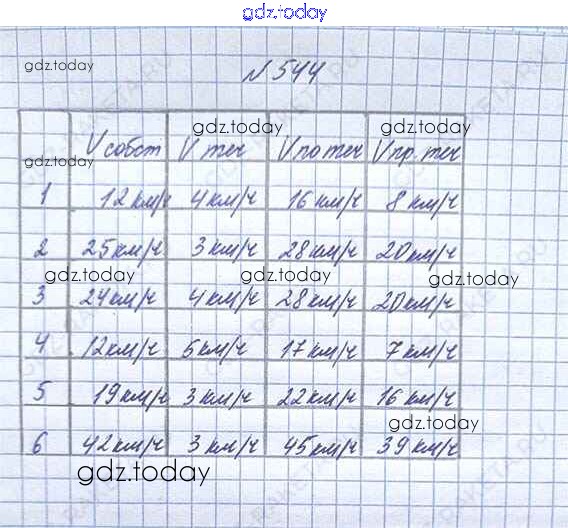 gdz.today
gdz.today
N 544
gdz.today gdz.today
V собст V теч V по теч V пр. теч
gdz.today
1 12 км/ч 4 км/ч 16 км/ч 8 км/ч
2 25 км/ч 3 км/ч 28 км/ч 20 км/ч
gdz.today gdz.today gdz.today
3 24 км/ч 4 км/ч 28 км/ч 20 км/ч
4 12 км/ч 5 км/ч 17 км/ч 7 км/ч
5 19 км/ч 3 км/ч 22 км/ч 16 км/ч
gdz.today
6 42 км/ч 3 км/ч 45 км/ч 39 км/ч
gdz.today